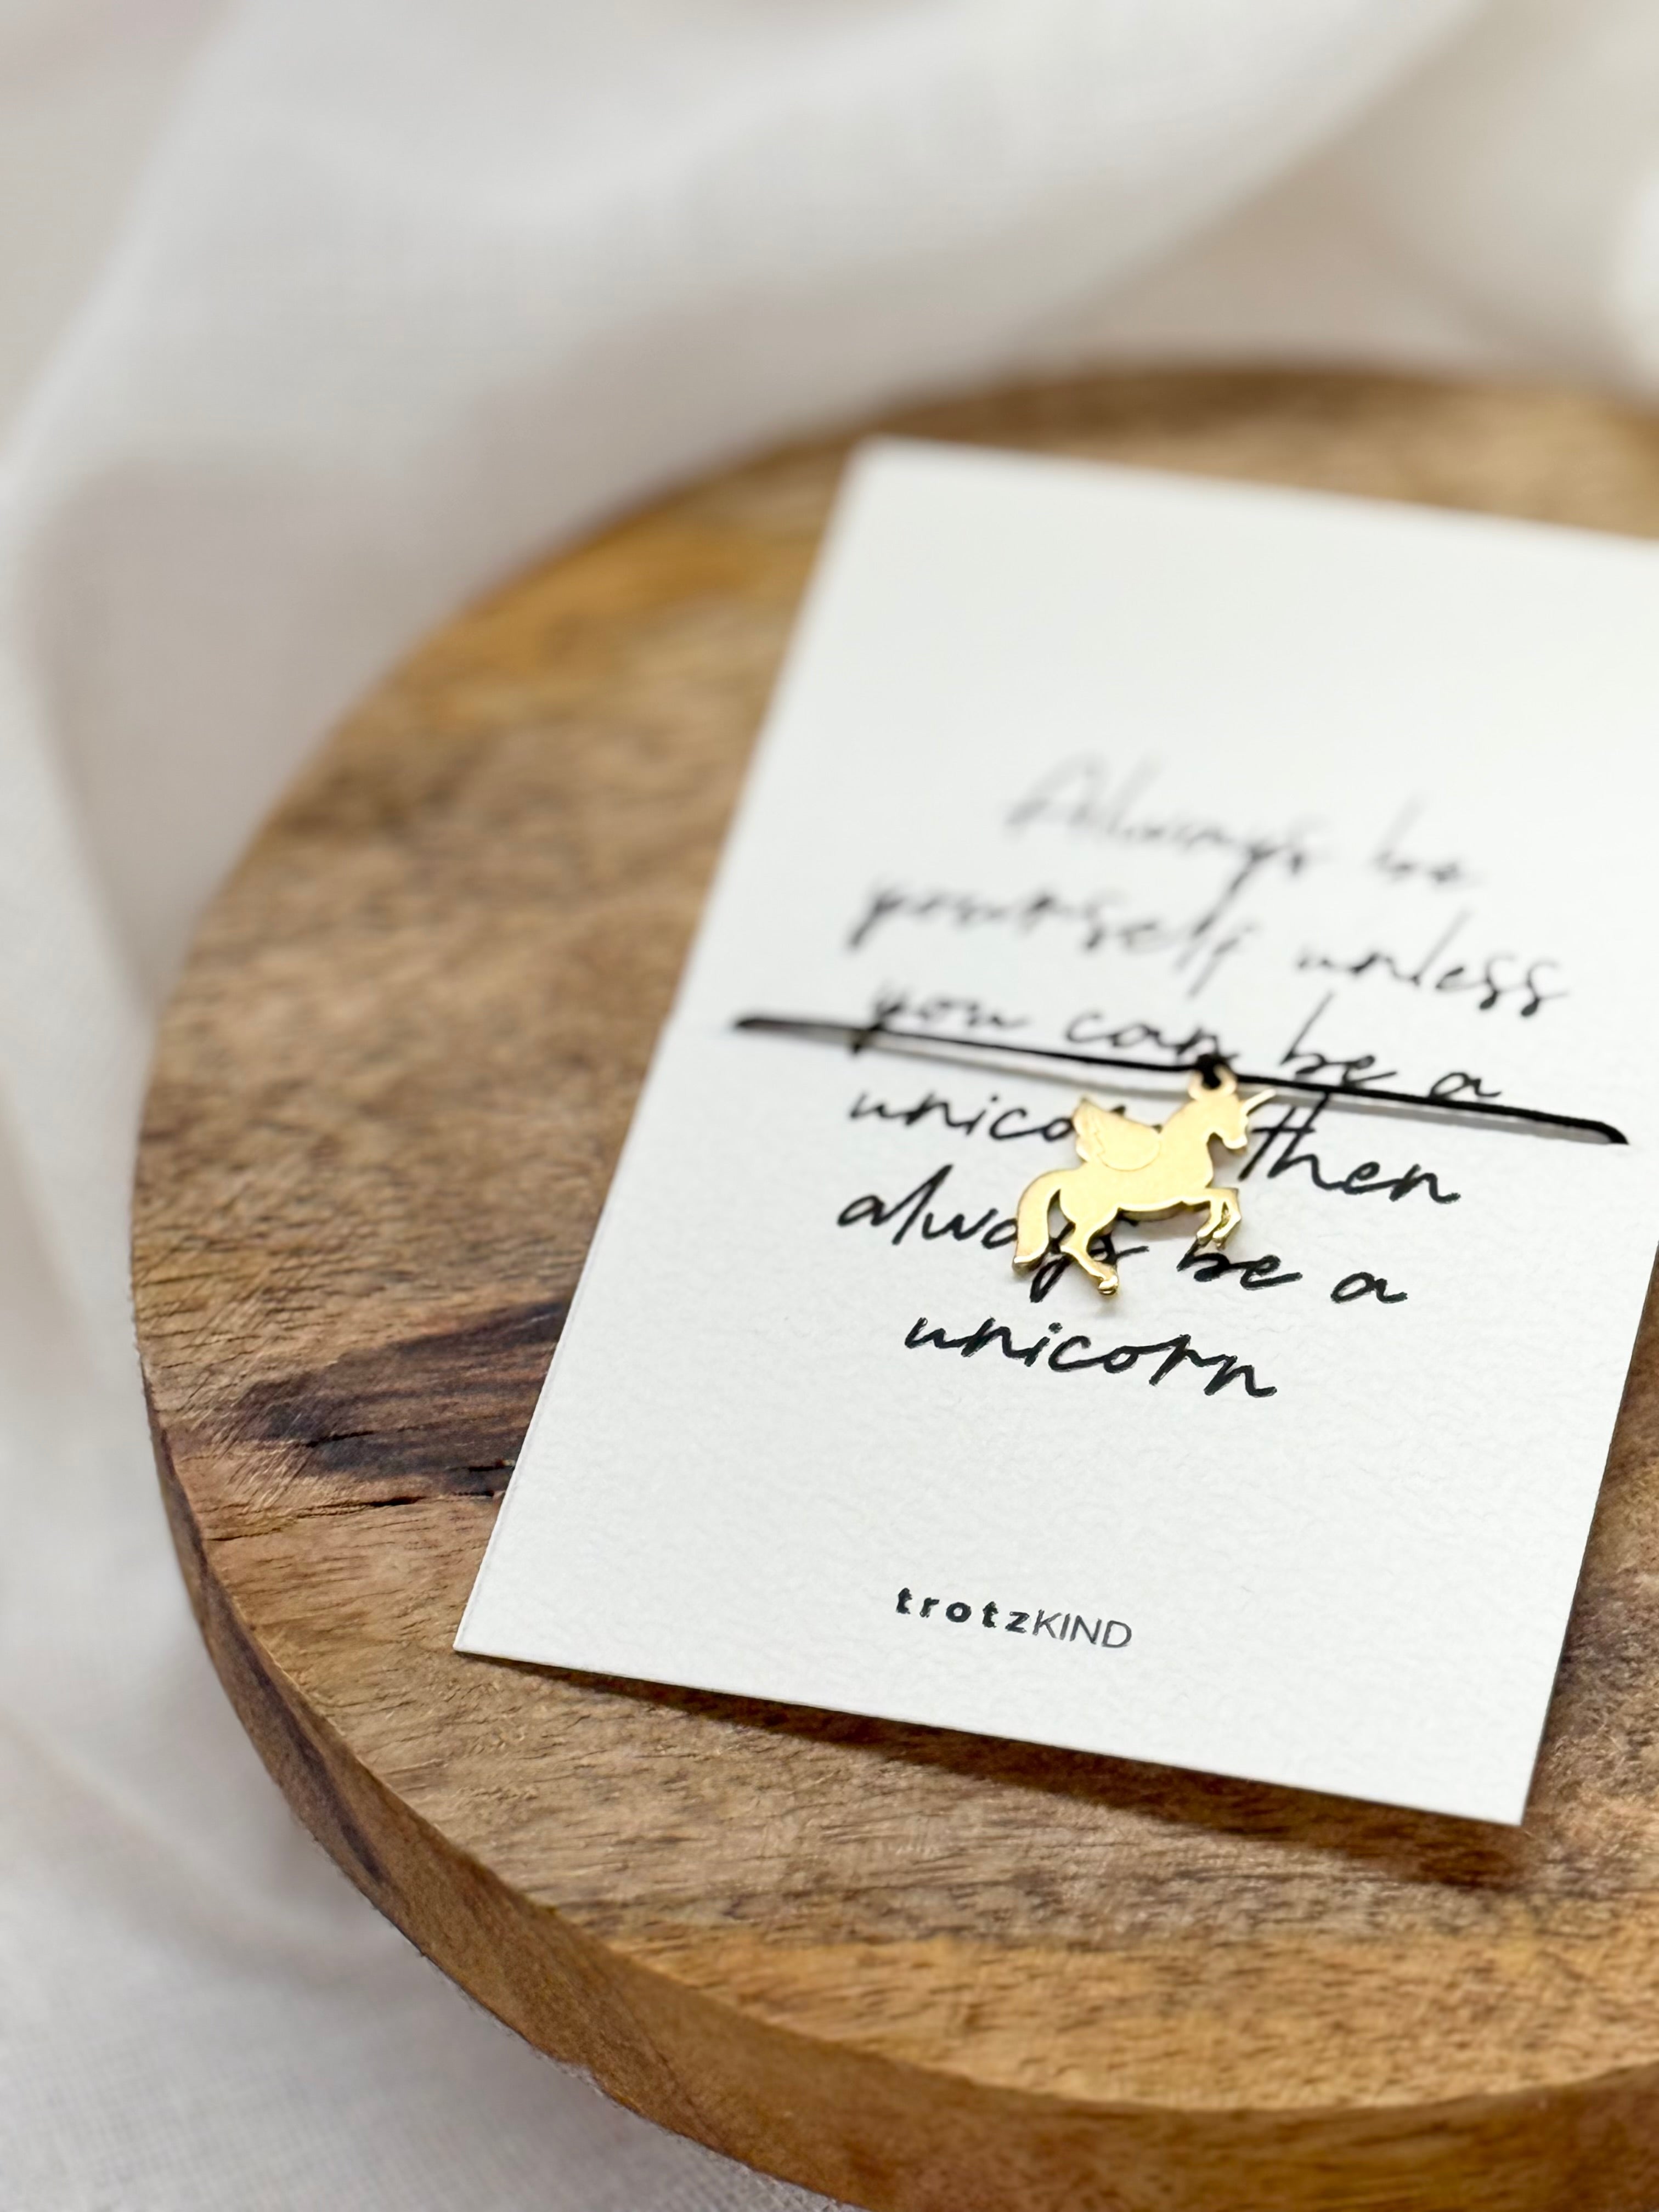 Always be
yourself unless
you can be a
unicorn then
always be a
unicorn
trotzKIND